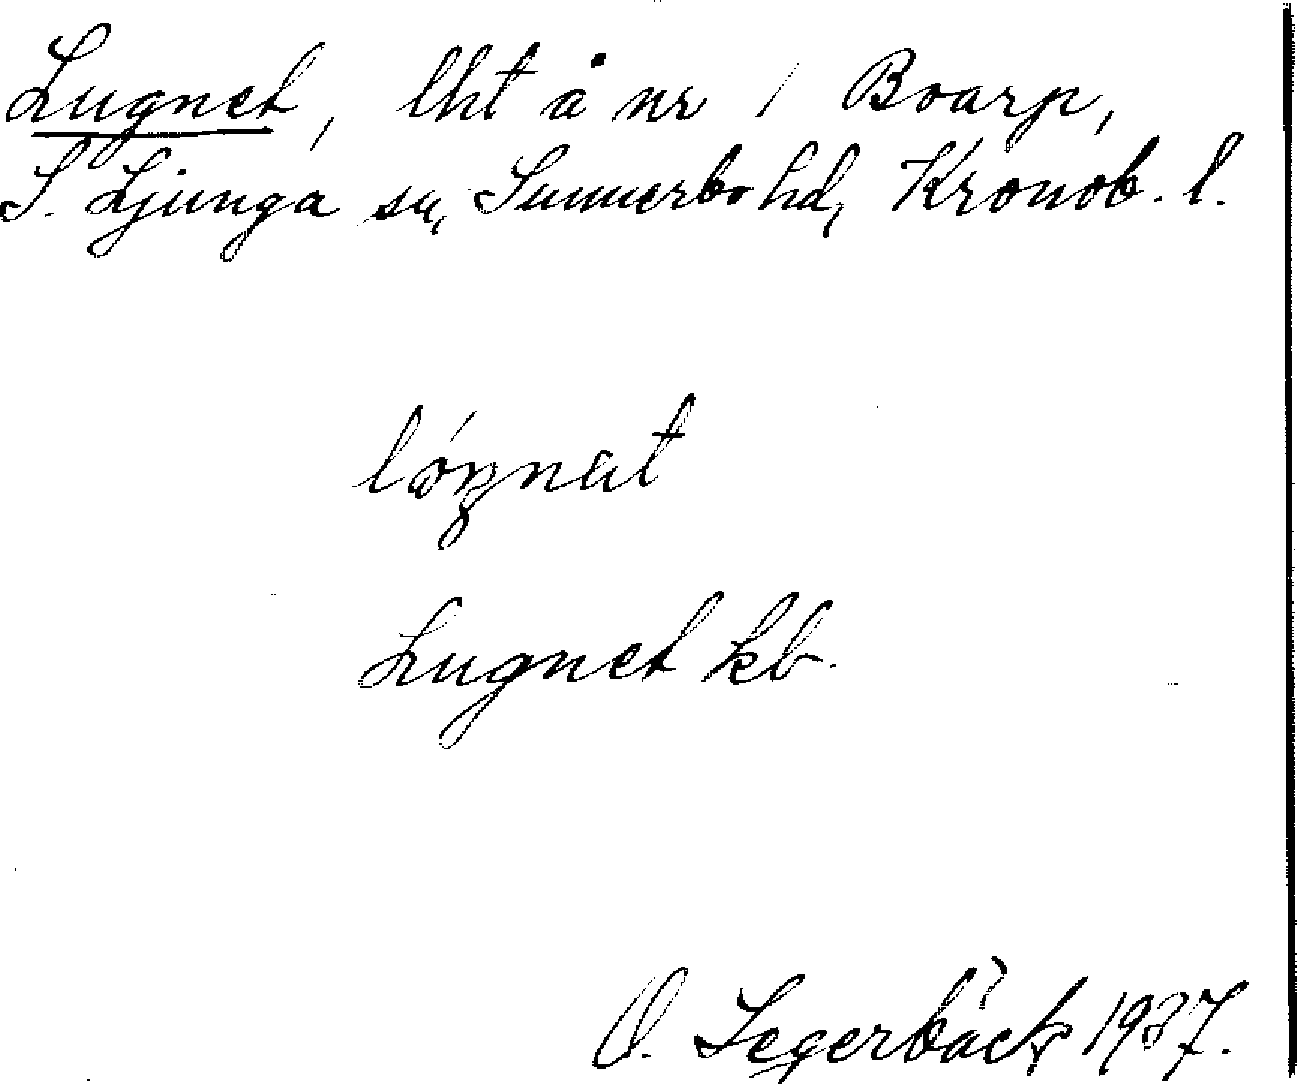 Lugnet, lht å nr 1 Boarp,
S. Ljunga sn, Sunnerbo hd, Kronob. l.
lóŋnat
Lugnet kb.
O. Segerbäck 1937.